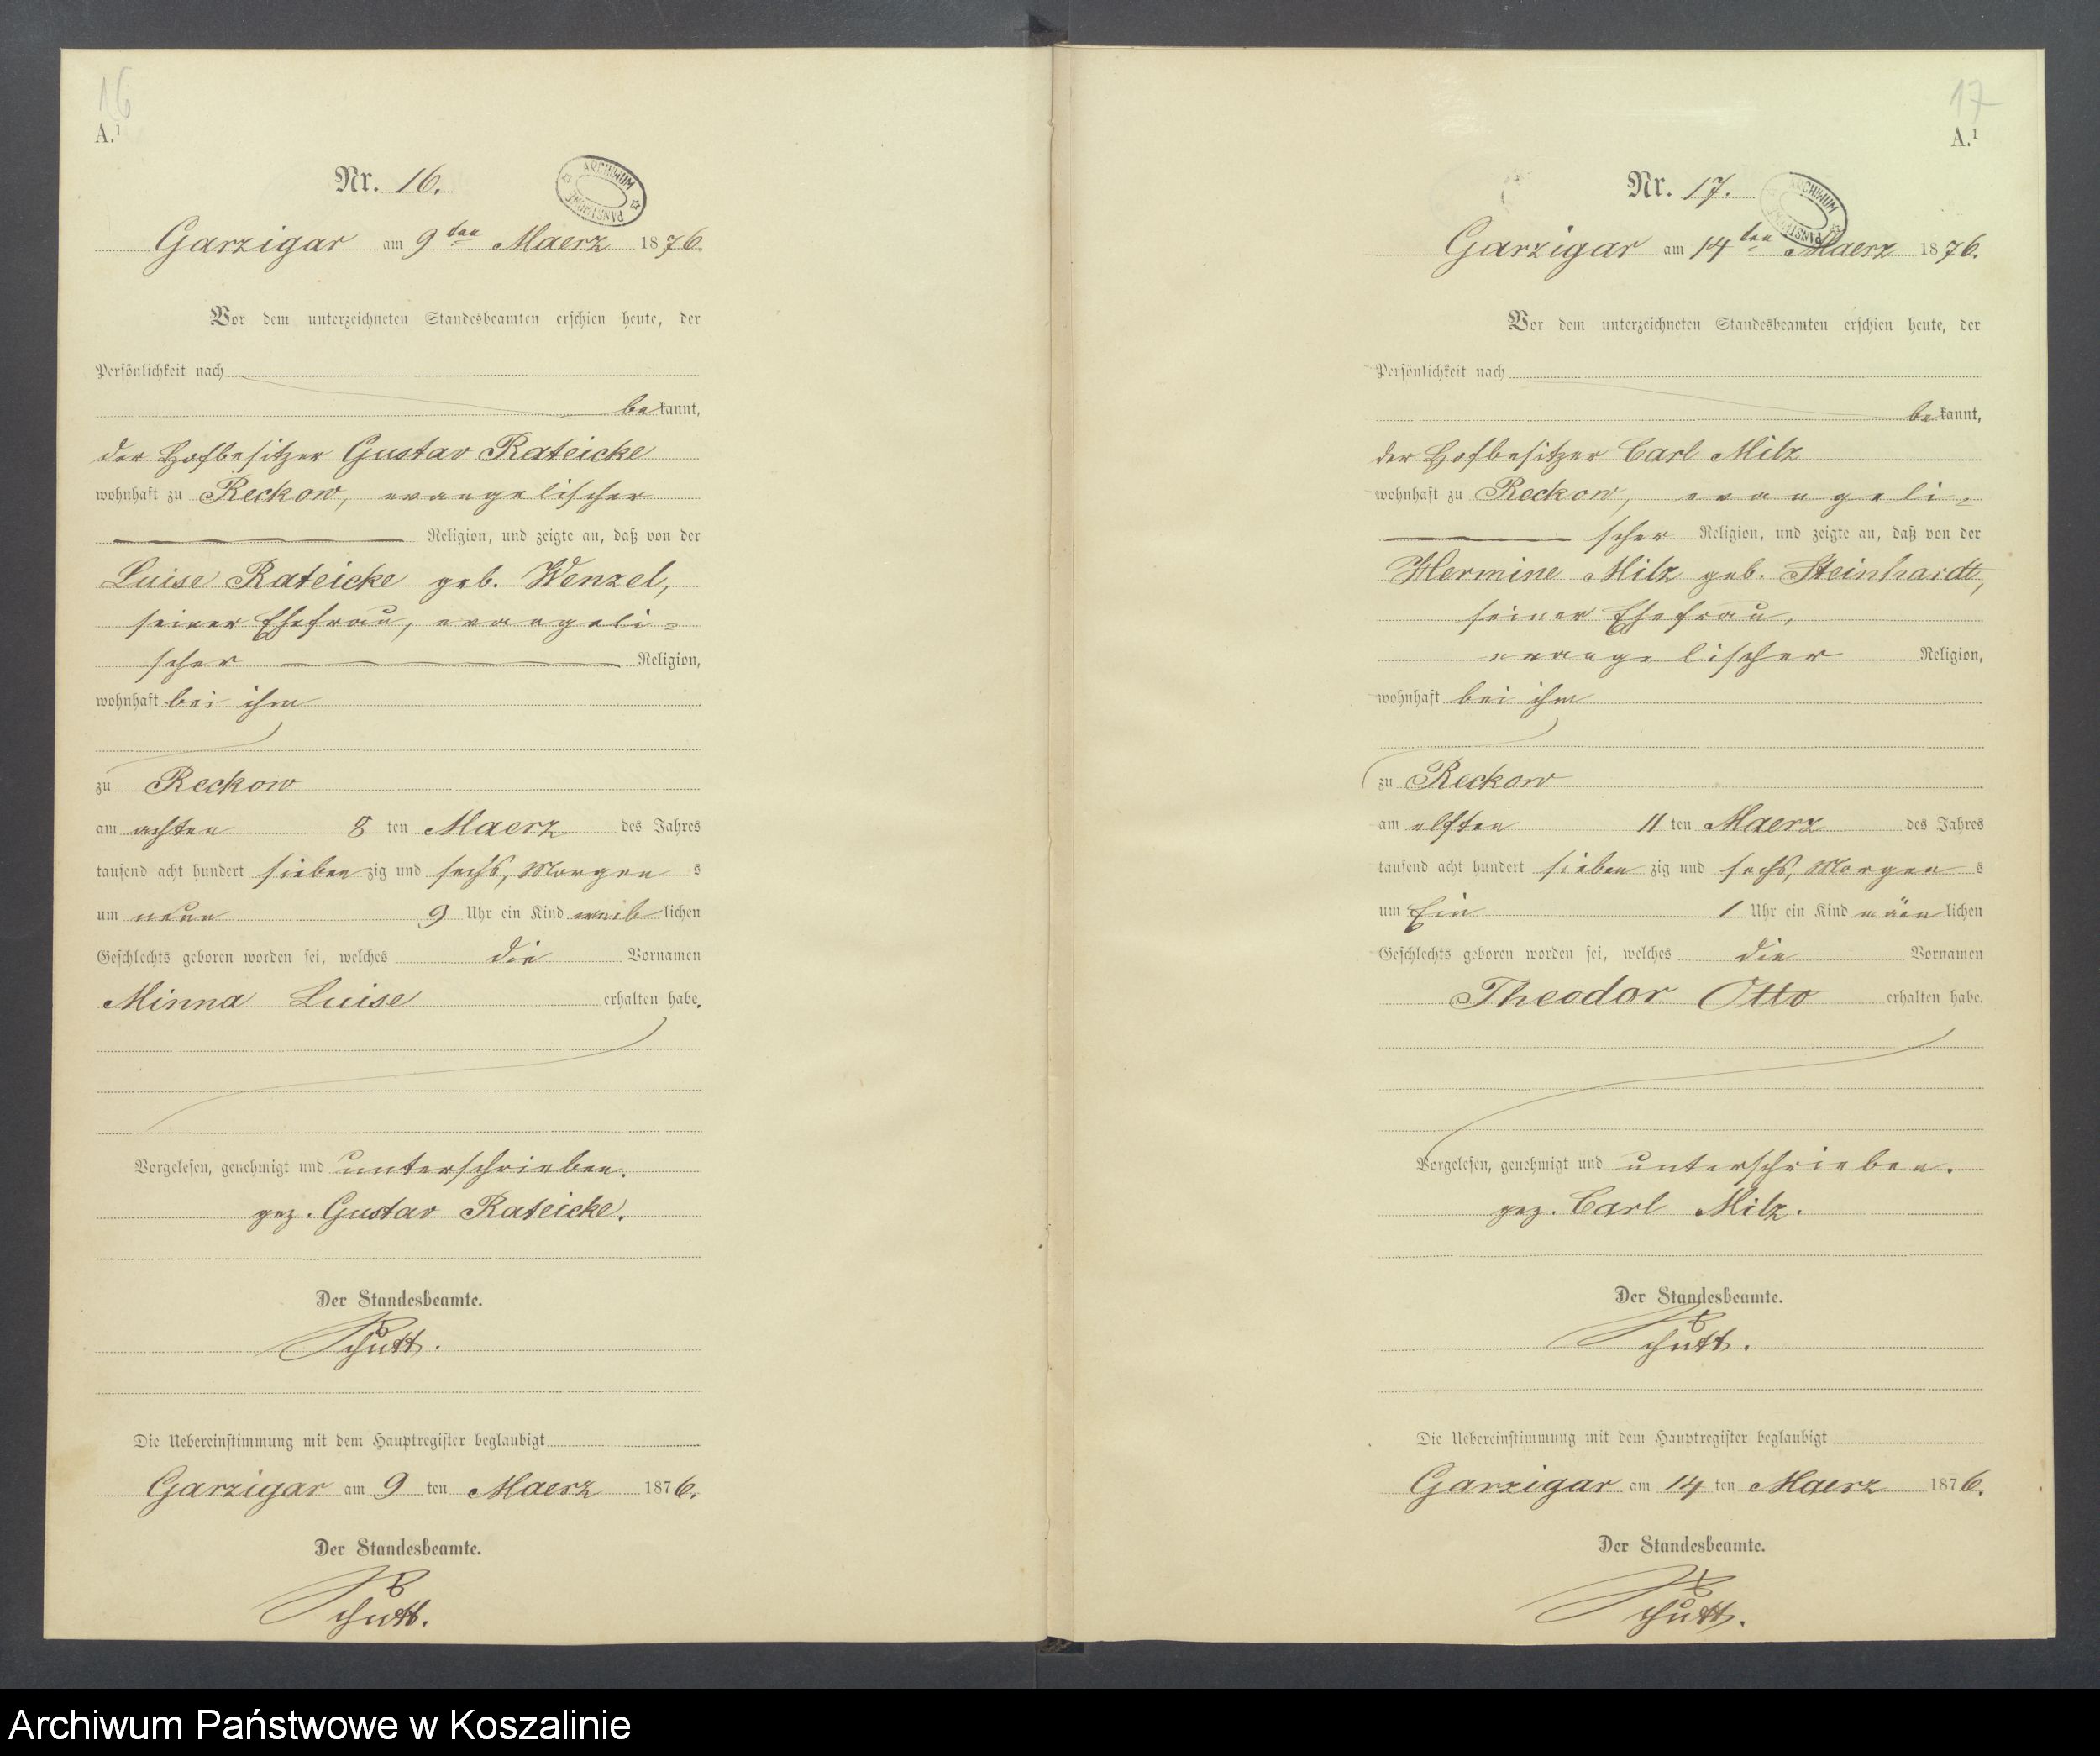 16
A.¹
Nr. 16.
ARCHIWUM PAŃSTWOWE
Garzigar am 9ten Maerz 1876.
Vor dem unterzeichneten Standesbeamten erschien heute, der
Persönlichkeit nach
bekannt,
der Hofbesitzer Gustav Rateicke
wohnhaft zu Reckow, evangelischer
Religion, und zeigte an, daß von der
Luise Rateicke geb. Wenzel,
seiner Ehefrau, evangeli=
scher Religion,
wohnhaft bei ihm
zu Reckow
am achten 8 ten Maerz des Jahres
tausend acht hundert siebenzig und sechs, Morgens
um neun 9 Uhr ein Kind weiblichen
Geschlechts geboren worden sei, welches die Vornamen
Minna Luise erhalten habe.
Vorgelesen, genehmigt und unterschrieben.
gez. Gustav Rateicke.
Der Standesbeamte.
Schütt.
Die Uebereinstimmung mit dem Hauptregister beglaubigt
Garzigar am 9 ten Maerz 1876.
Der Standesbeamte.
Schütt.
17
A.¹
Nr. 17.
ARCHIWUM PAŃSTWOWE
Garzigar am 14ten Maerz 1876.
Vor dem unterzeichneten Standesbeamten erschien heute, der
Persönlichkeit nach
bekannt,
der Hofbesitzer Carl Milz
wohnhaft zu Reckow, evangeli=
scher Religion, und zeigte an, daß von der
Hermine Milz geb. Steinhardt,
seiner Ehefrau,
evangelischer Religion,
wohnhaft bei ihm
zu Reckow
am elften 11 ten Maerz des Jahres
tausend acht hundert siebenzig und sechs, Morgens
um Ein 1 Uhr ein Kind männlichen
Geschlechts geboren worden sei, welches die Vornamen
Theodor Otto erhalten habe.
Vorgelesen, genehmigt und unterschrieben.
gez. Carl Milz.
Der Standesbeamte.
Schütt.
Die Uebereinstimmung mit dem Hauptregister beglaubigt
Garzigar am 14 ten Maerz 1876.
Der Standesbeamte.
Schütt.
Archiwum Państwowe w Koszalinie